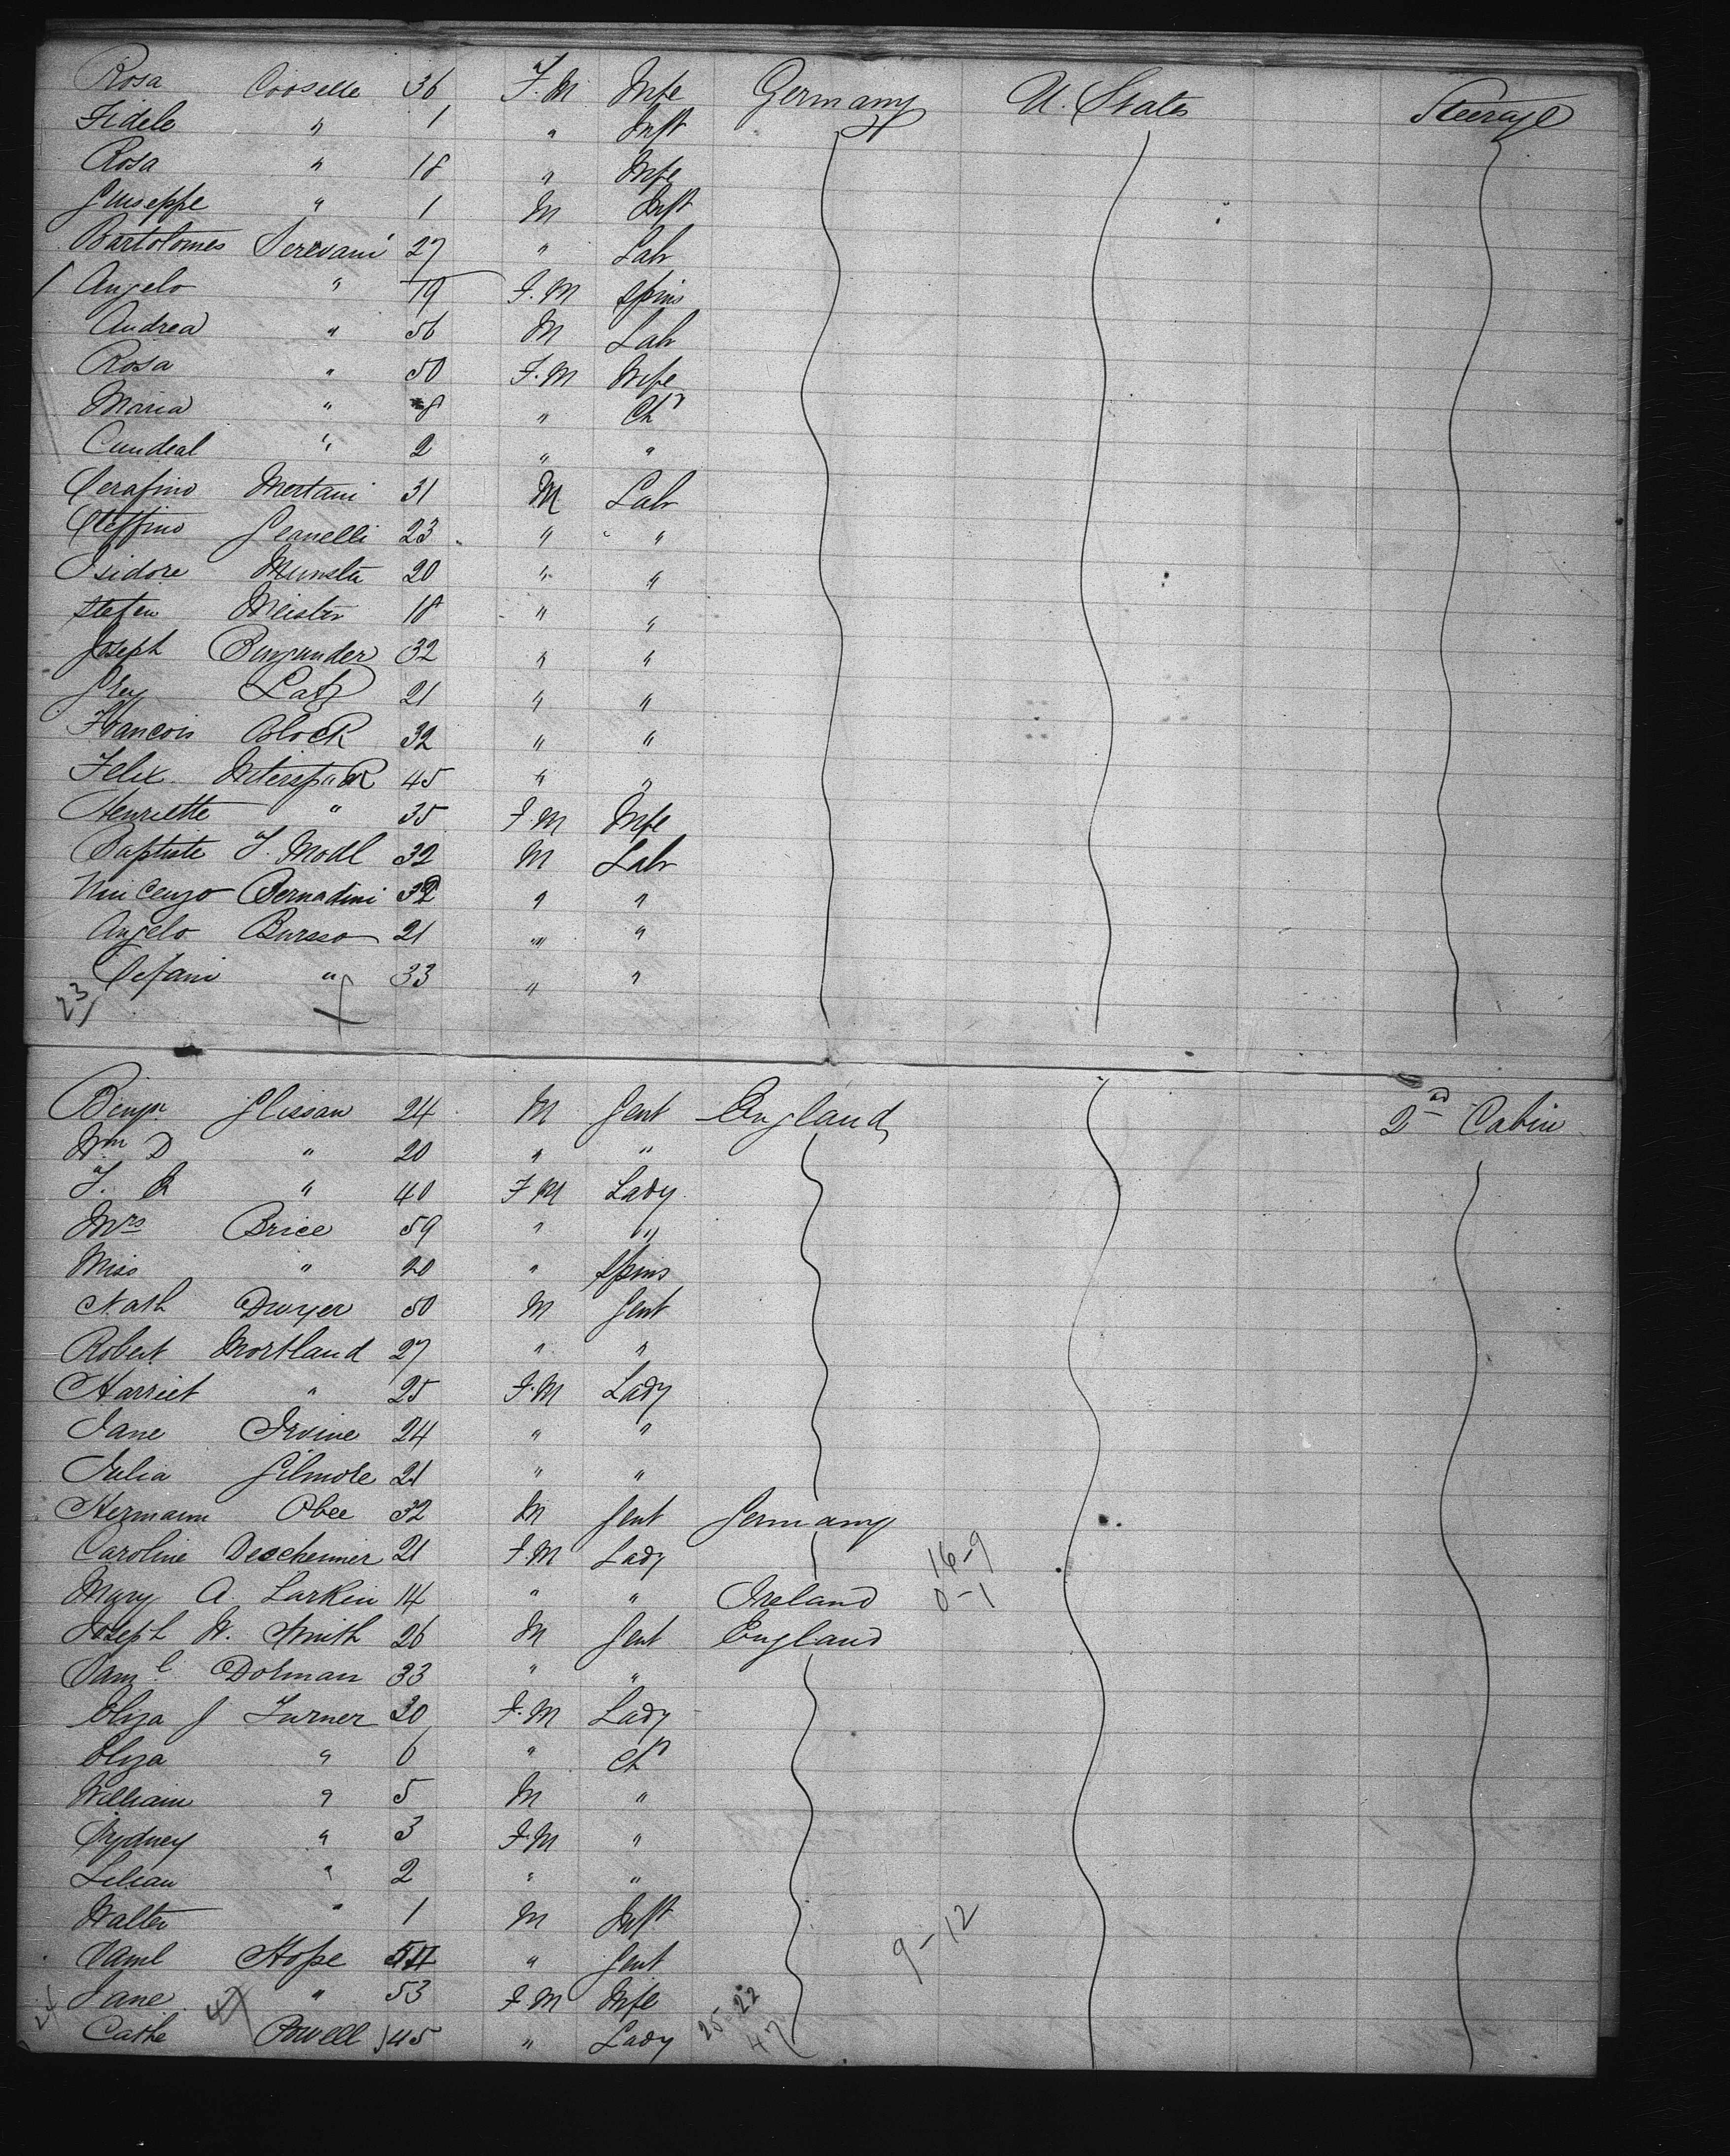 Rosa Cooselle 36 F.M Wife Germany U. States Steerage
Fidele " 1 " Inft
Rosa " 18 " Wife
Giuseppe " 1 M Inft
Bartolomes Serevani 27 " Labr
Angelo " 19 F.M Spins
Andrea " 56 M Labr
Rosa " 50 F.M Wife
Maria " 8 " Chd
Cundeal " 2 " "
Serafino Mertani 31 M Labr
Steffino Geanelli 23 " "
Isidore 20 " "
Stefen Meister 18 " "
Joseph Burgunder 32 " "
Latz 21 " "
Francois Block 32 " "
Felix 45 " "
Henriette " 35 F.M Wife
Baptiste J. Modl 32 M Labr
Vincenzo Bernadini 32 " "
Angelo Bursso 21 " "
Stefani " 33 " "
23
Benjn Glissan 24 M Gent England 2nd Cabin
Wm D " 20 " "
J. R " 40 F M Lady
Mrs Brice 59 " "
Miss " 20 " Spins
Nath Dwyer 50 M Gent
Robert Mortland 27 " "
Harriet " 25 F.M Lady
Jane Irvine 24 " "
Julia Gilmore 21 " "
Hermann Obee 32 M Gent Germany
Caroline Deschenner 21 F.M Lady 16-9
Mary A. Larkin 14 " " Ireland 0-1
Joseph W. Smith 26 M Gent England
Saml Dolman 33 " "
Eliza J Turner 30 F.M Lady
Eliza " 6 " Chd
William " 5 M "
Sydney " 3 F.M "
Lilian " 2 " "
Walter " 1 M Inft
Saml Hope 54 " Gent 9-12
Jane " 53 F M Wife 25-22
24 47 Cathe Powell 45 " Lady 47